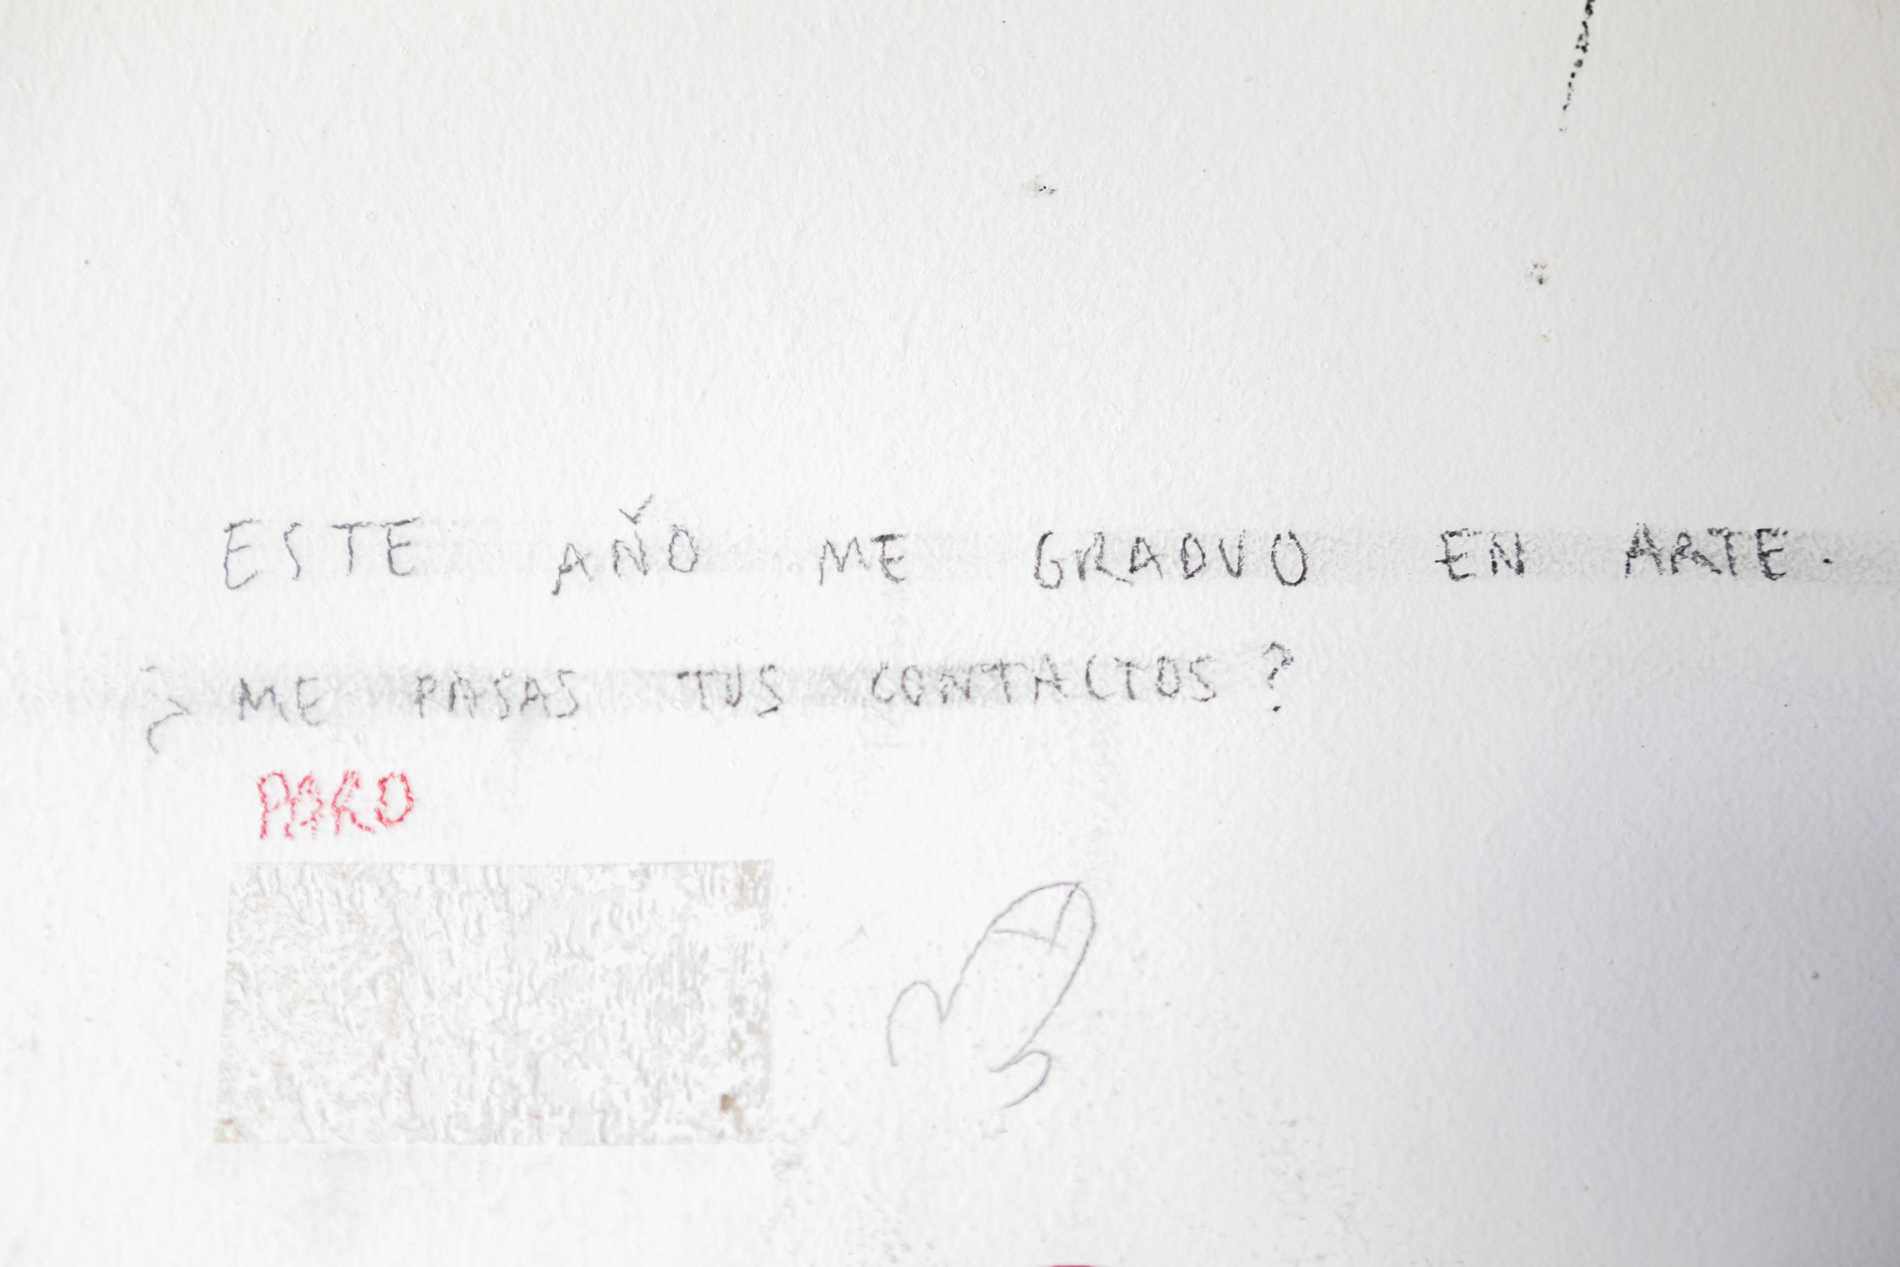 ESTE AÑO ME GRADUO EN ARTE.
¿ME PASAS TUS CONTACTOS?
PARO